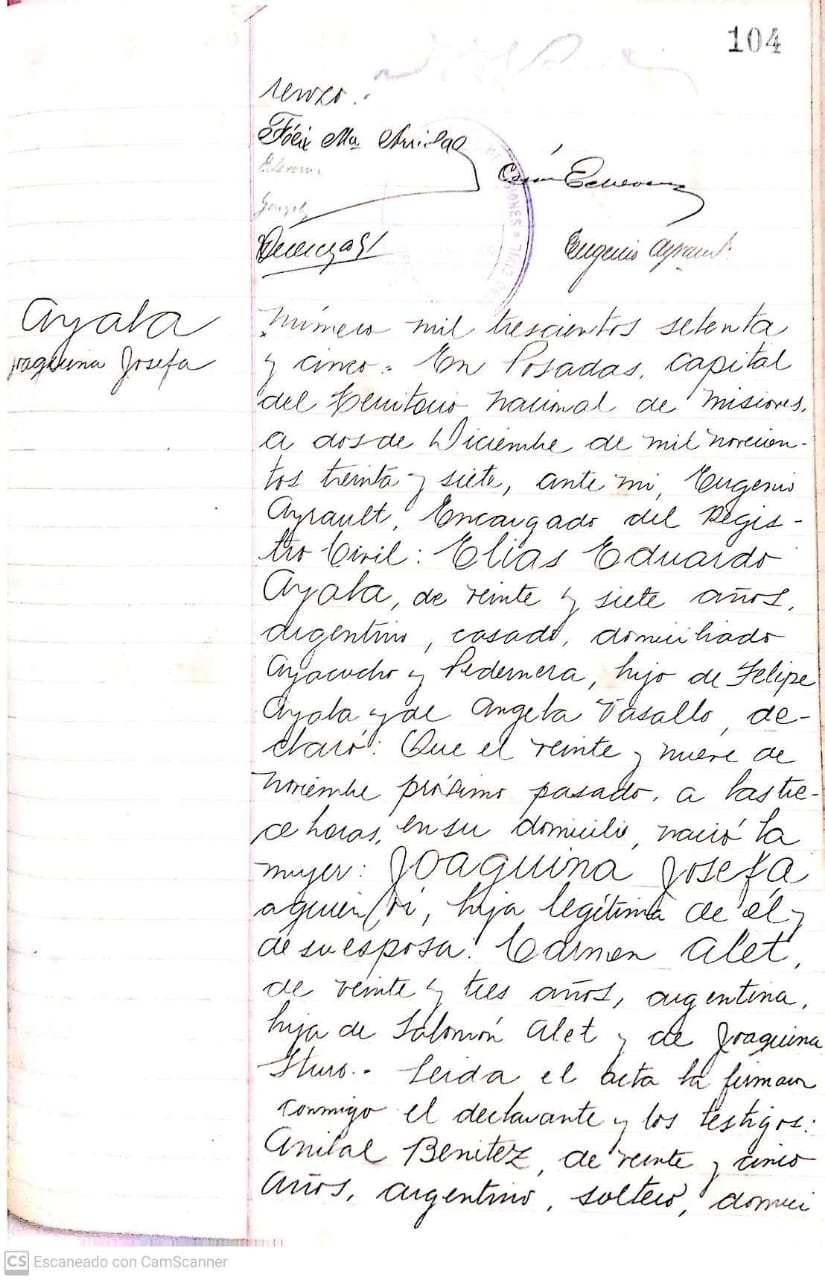 104
renzo.
Félix Ma
César
Eugenio Ayrault
Ayala
Joaquina Josefa
Número mil trescientos setenta
y cinco. En Posadas, capital
del Territorio Nacional de Misiones,
a dos de Diciembre de mil novecien-
tos treinta y siete, ante mi, Eugenio
Ayrault, Encargado del Regis-
tro Civil: Elias Eduardo
Ayala, de veinte y siete años,
argentino, casado, domiciliado
Ayacucho y Pedernera, hijo de Felipe
Ayala y de Angela Vasallo, de-
claró: Que el veinte y nueve de
Noviembre próximo pasado, a las tre-
ce horas, en su domicilio, nació la
mujer: Joaquina Josefa
a quien, hija legítima de él y
de su esposa: Carmen Alet,
de veinte y tres años, argentina,
hija de Salomón Alet y de Joaquina
Leida el acta la firman
conmigo el declarante y los testigos:
Anibal Benitez, de veinte y cinco
años, argentino, soltero, domici
CS Escaneado con CamScanner